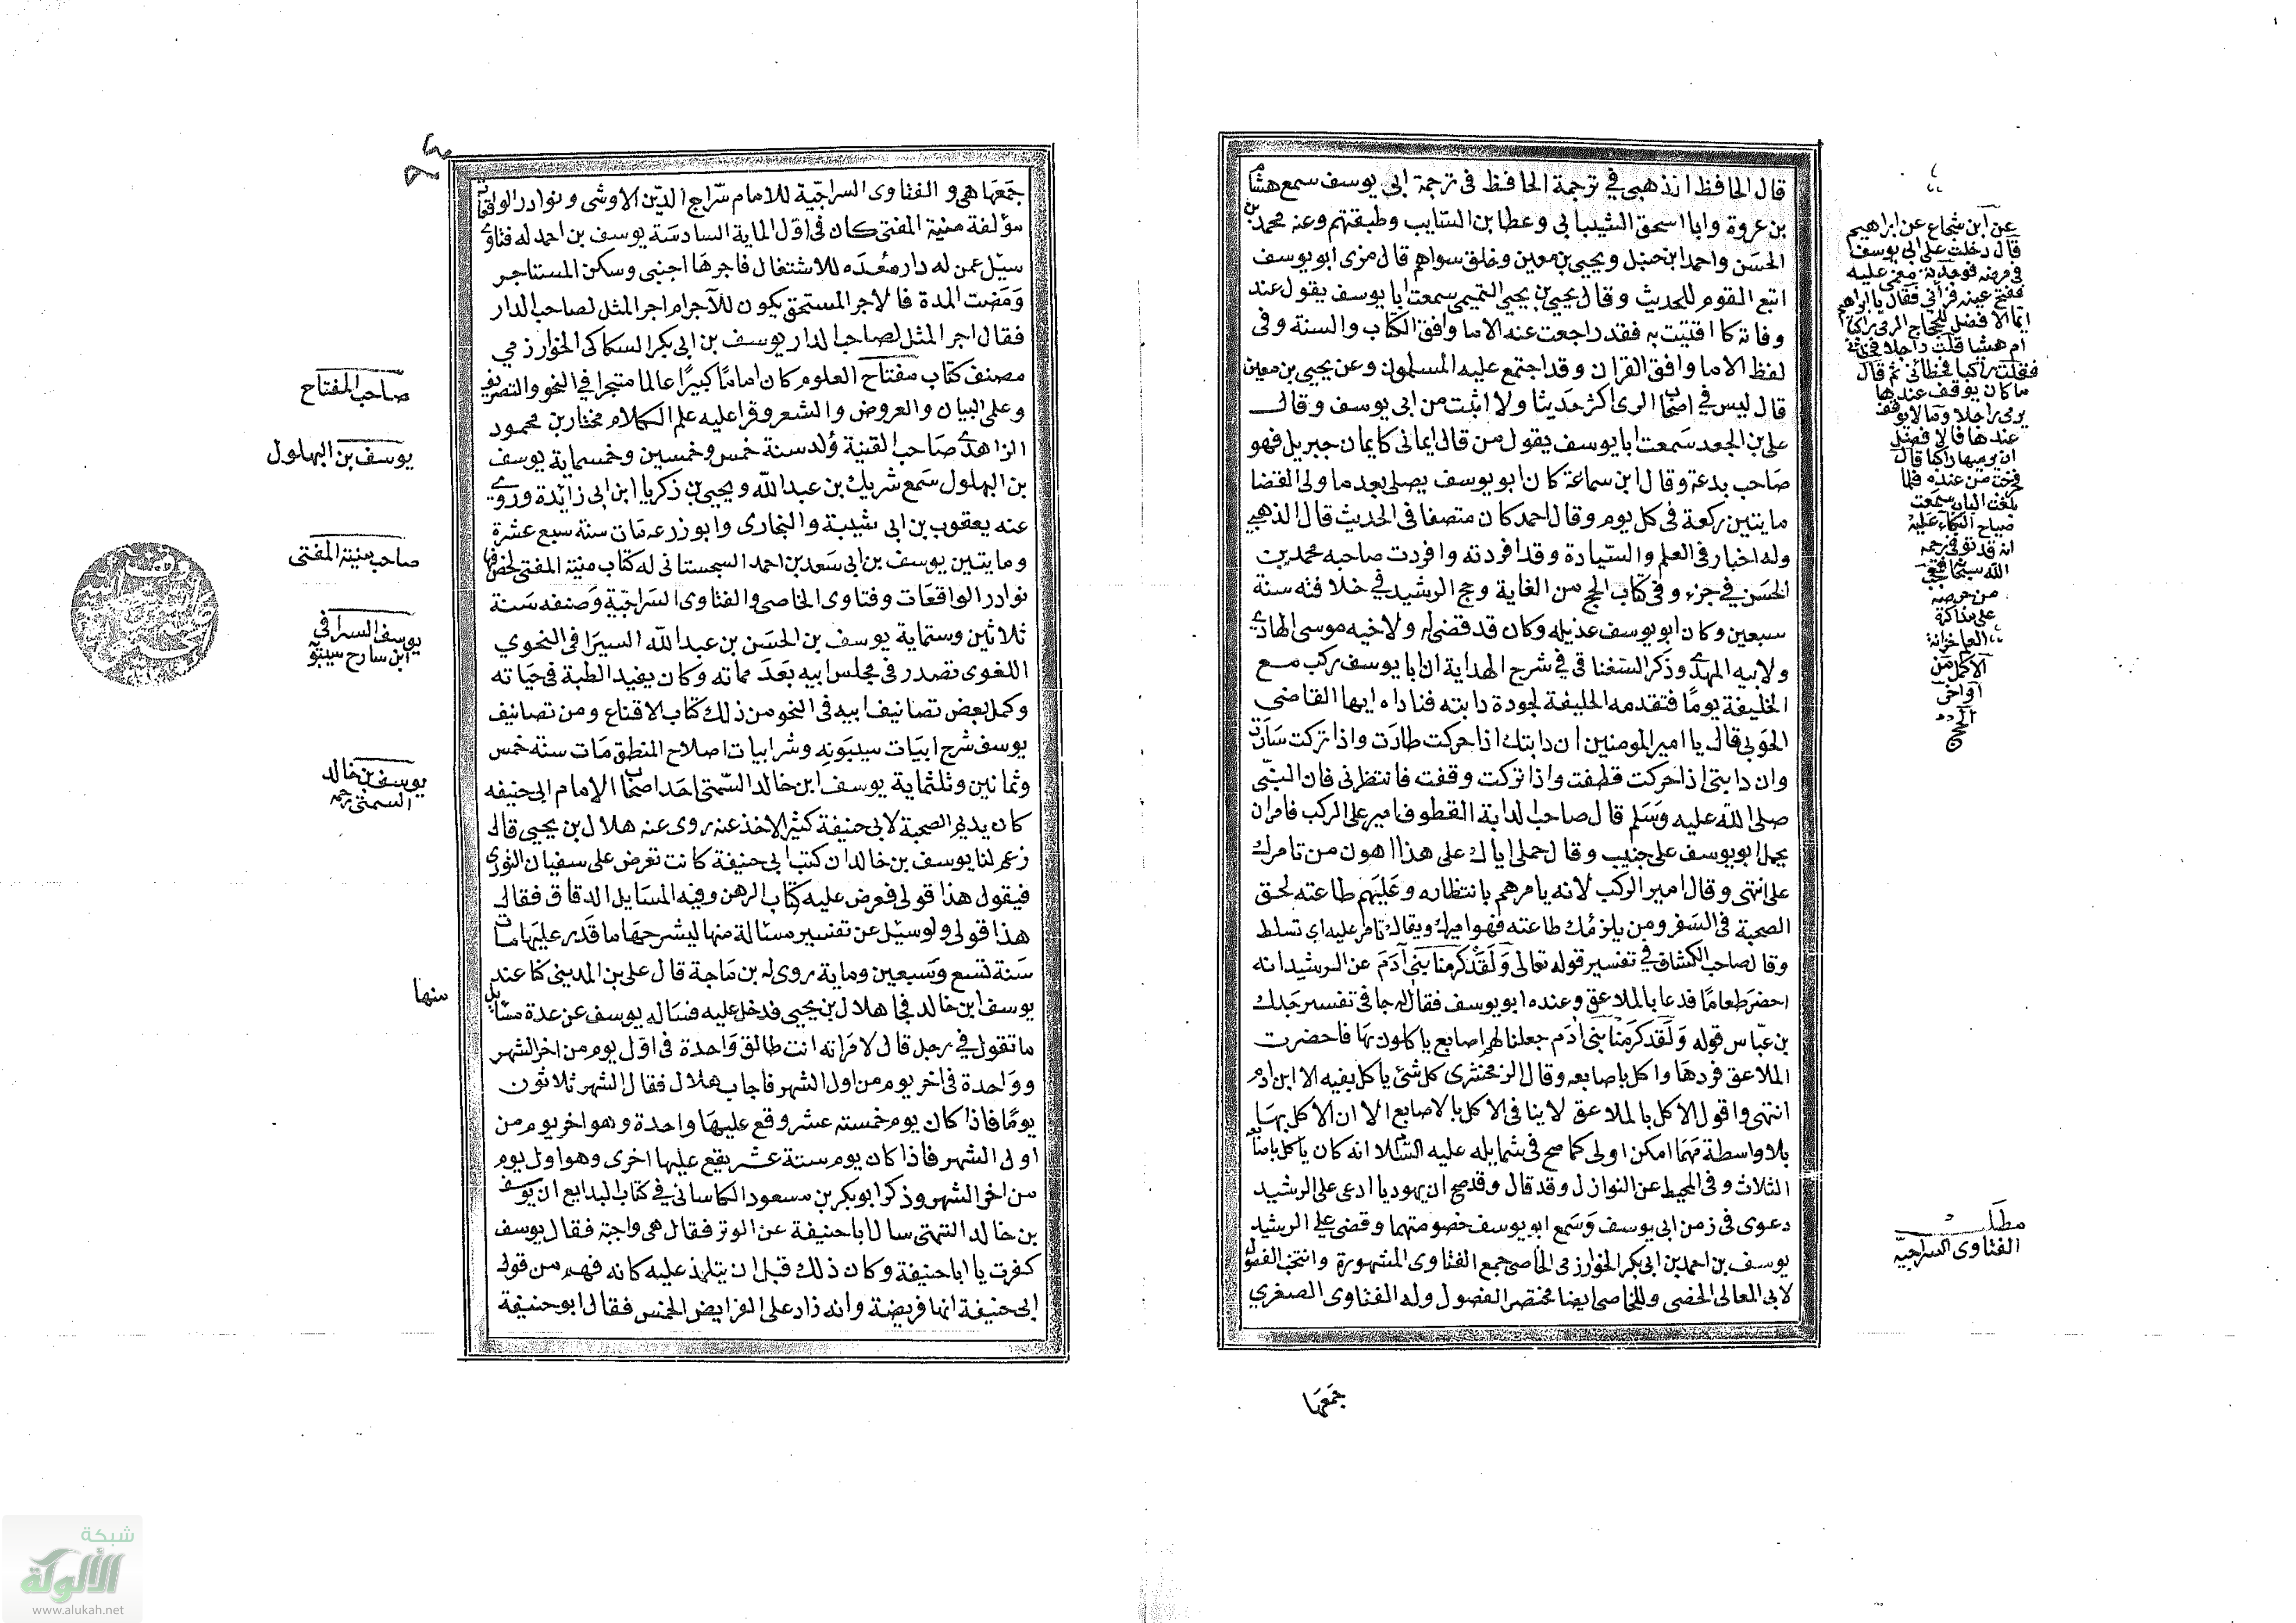 قال الحافظ الذهبي في ترجمة الحافظ في ترجمة ابي يوسف سمع هشام
بن عروة وابا اسحق الشيباني وعطا بن السايب وطبقتهم وعنه محمد بن
الحسن واحمد ابن حنبل ويحيى بن معين وخلق سواهم قال مزى ابو يوسف
اتبع القوم للحديث وقال يحيى بن يحيى التميمى سمعت ابا يوسف يقول عند
وفاته كلما افتيت به فقد راجعت عنه الا ما وافق الكتاب والسنة وفى
لفظ الا ما وافق القران وقد اجتمع عليه المسلمون وعن يحيى بن معين
قال ليس في اصحاب الرى اكثر حديثا ولا اثبت من ابى يوسف وقال
على بن الجعد سمعت ابا يوسف يقول من قال ايمانى كايمان جبريل فهو
صاحب بدعة وقال ابن سماعة كان ابو يوسف يصلى بعد ما ولى القضا
مايتين ركعة فى كل يوم وقال احمد كان متصفا فى الحديث قال الذهبي
وله اخبار فى العلم والسيادة وقد افردته وافردت صاحبه محمد بن
الحسن في جزء وفى كتاب الحج من الغاية وحج الرشيد في خلافته سنة
سبعين وكان ابو يوسف عديله وكان قد قضى له ولاخيه موسى الهادي
ولابيه المهدى وذكر السغناقي في شرح الهداية ان ابا يوسف ركب مع
الخليفة يوما فتقدمه الخليفة لجودة دابته فناداه ايها القاضى
الحق بى قال يا امير المومنين ان دابتك اذا حركت طارت واذا تركت سارت
وان دابتى اذا حركت قطفت واذا تركت وقفت فانتظرنى فان النبي
صلى الله عليه وسلم قال صاحب الدابة القطوف امير على الركب فامر ان
يحمل ابو يوسف على جنيب وقال حملى اياك على هذا اهون من تامرك
على انتهى وقال امير الركب لانه يامرهم بانتظاره وعليهم طاعته لحق
الصحبة فى السفر ومن يلزمك طاعته فهو اميرك ويقال تامر عليه اى تسلط
وقال صاحب الكشاف في تفسير قوله تعالى ولقد كرمنا بنى آدم عن الرشيد انه
احضر طعاما فدعا بالملاعق وعنده ابو يوسف فقال له جا فى تفسير جدك
بن عباس قوله ولقد كرمنا بنى ادم جعلنا لهم اصابع ياكلون بها فاحضرت
الملاعق فردها واكل باصابعه وقال الزمخشرى كل شئ ياكل بفيه الا ابن ادم
انتهى واقول الاكل بالملاعق لا ينا فى الاكل بالاصابع الا ان الاكل بها
بلا واسطة مهما امكن اولى كما صح فى شمايله عليه السلام انه كان ياكل باصابعه
الثلاث وفى المحيط عن النوازل وقد قال وقد صح ان يهوديا ادعى على الرشيد
دعوى فى زمن ابى يوسف وسمع ابو يوسف خصومتهما وقضى على الرشيد
يوسف بن احمد بن ابى بكر الخوارزمى الخاصى جمع الفتاوى المشهورة وانتخب الفصول
لابى المعالى الحضى وللخاصى ايضا مختصر الفصول وله الفتاوى الصغري
جمعها
عن ابن شجاع عن ابراهيم
قال دخلت على ابى يوسف
فى مرضه فوجدته مغمى عليه
ففتح عينه فرآنى فقال يا ابراهيم
ايما الافضل للحجاج الرمى راكبا
ام ماشيا قلت راجلا فخطأنى
فقلت راكبا فخطانى ثم قال
ما كان يوقف عندها
يرمى راجلا وما لا يوقف
عندها فالافضل
ان يرميها راكبا قال
فخرجت من عنده فلما
بلغت الباب سمعت
صياح النساء عليه
انه قد توفى رحمه
الله سبحانه فتعجبت
من حرصه
على مذاكرة
العلم
الاكمل من
اواخر
الحج
مطلب
الفتاوى السراجية
جمعها هى و الفتاوى السراجية للامام سراج الدين الاوشى ونوادر الواقعات
مؤلفة منية المفتى كان فى اول الماية السادسة يوسف بن احمد له فتاوى
سئل عمن له دار معده للاشتغال فاجرها اجنبى وسكن المستاجر
ومضت المدة فالاجر المستحق يكون للآجر ام اجر المثل لصاحب الدار
فقال اجر المثل لصاحب الدار يوسف بن ابى بكر السكاكى الخوارزمي
مصنف كتاب مفتاح العلوم كان اماما كبيرا عالما متبحرا في النحو والتصريف
وعلى البيان والعروض والشعر وقرا عليه علم الكلام مختار بن محمود
الزاهدى صاحب القنية ولد سنة خمس وخمسين وخمسماية يوسف
بن البهلول سمع شريك بن عبد الله ويحيى بن زكريا ابن ابى زائدة وروى
عنه يعقوب بن ابى شيبة والبخارى وابو زرعه مات سنة سبع عشرة
ومايتين يوسف بن ابى سعد بن احمد السجستانى له كتاب منية المفتى لخص فيها
نوادر الواقعات وفتاوى الخاصى والفتاوى السراجية وصنفه سنة
ثلاثين وستماية يوسف بن الحسن بن عبد الله السيرافى النحوي
اللغوى تصدر فى مجلس ابيه بعد مماته وكان يفيد الطبة فى حياته
وكمل بعض تصانيف ابيه فى النحو من ذلك كتاب الاقناع ومن تصانيف
يوسف شرح ابيات سيبويه وشر ابيات اصلاح المنطق مات سنة خمس
وثمانين وثلثماية يوسف ابن خالد السمتى احد اصحاب الامام ابى حنيفه
كان يديم الصحبة لابى حنيفة كثير الاخذ عنه روى عنه هلال بن يحيى قال
زعم لنا يوسف بن خالد ان كتب ابى حنيفة كانت تعرض على سفيان الثورى
فيقول هذا قولى فعرض عليه كتاب الرهن وفيه المسايل الدقاق فقال
هذا قولى ولو سئل عن تفسير مسئالة منها ليشرحها ما قدر عليها مات
سنة تسع وسبعين وماية روى له بن ماجة قال على بن المدينى كنا عند
يوسف ابن خالد فجا هلال بن يحيى فدخل عليه فسأله يوسف عن عدة مسايل
ما تقول في رجل قال لامراته انت طالق واحدة فى اول يوم من اخر الشهر
وواحدة فى اخر يوم من اول الشهر فاجاب هلال فقال الشهر ثلاثون
يوما فاذا كان يوم خمسته عشر وقع عليها واحدة وهو اخر يوم من
اول الشهر فاذا كان يوم ستة عشر يقع عليها اخرى وهو اول يوم
من اخر الشهر وذكر ابو بكر بن مسعود الكاسانى في كتاب البدايع ان يوسف
بن خالد التهتى سال ابا حنيفة عن الوتر فقال هى واجبة فقال يوسف
كفرت يا ابا حنيفة وكان ذلك قبل ان يتلمذ عليه كانه فهم من قول
ابى حنيفة انها فريضة وانه زاد على الفرايض الخمس فقال ابو حنيفة
صاحب المفتاح
يوسف بن البهلول
صاحب منية المفتى
يوسف السيرافي
ابن شارح سيبويه
يوسف بن خالد
السمتى رحمه
منها
شبكة
الألوكة
www.alukah.net